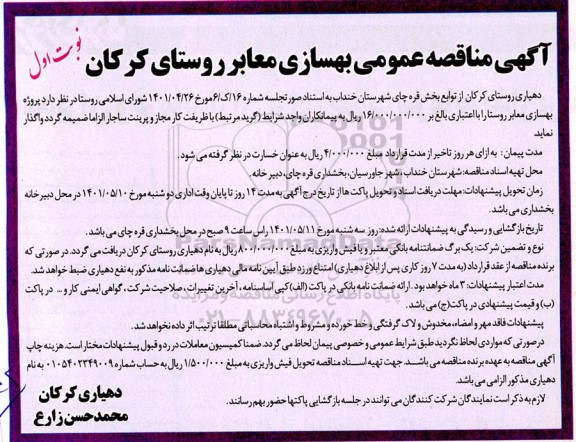 نوبت اول
آگهی مناقصه عمومی بهسازی معابر روستای کرکان
دهیاری روستای کرکان از توابع بخش قره چای شهرستان خنداب به استناد صورتجلسه شماره ۱۶/ک/۶ مورخ ۱۴۰۱/۰۴/۲۶ شورای اسلامی روستا در نظر دارد پروژه
بهسازی معابر روستا را با اعتباری بالغ بر ۱۶/۰۰۰/۰۰۰/۰۰۰ ریال به پیمانکاران واجد شرایط (گرید مرتبط) با ظرفیت کار مجاز و پرینت ساجار الزاما ضمیمه گردد واگذار
نماید.
مدت پیمان: به ازای هر روز تاخیر از مدت قرارداد مبلغ ۴/۰۰۰/۰۰۰ ریال به عنوان خسارت در نظر گرفته می شود.
محل تهیه اسناد مناقصه: شهرستان خنداب، شهر جاورسیان، بخشداری قره چای، دبیرخانه
زمان تحویل پیشنهادات: مهلت دریافت اسناد و تحویل پاکت ها از تاریخ درج آگهی به مدت ۱۴ روز تا پایان وقت اداری دو شنبه مورخ ۱۴۰۱/۰۵/۱۰ در محل دبیرخانه
بخشداری می باشد.
تاریخ بازگشایی و رسیدگی به پیشنهادات ارائه شده: روز سه شنبه مورخ ۱۴۰۱/۰۵/۱۱ راس ساعت ۹ صبح در محل بخشداری قره چای می باشد.
نوع و تضمین شرکت: یک برگ ضمانتنامه بانکی معتبر و یا فیش واریزی به مبلغ ۸۰۰/۰۰۰/۰۰۰ ریال به نام دهیاری روستای کرکان دریافت می گردد. در صورتی که
برنده مناقصه از عقد قرارداد (به مدت ۷ روز کاری پس از ابلاغ دهیاری) امتناع ورزد طبق آیین نامه مالی دهیاری ها ضمانت نامه مذکور به نفع دهیاری ضبط خواهد شد.
مدت اعتبار پیشنهادات: ۳ ماه خواهد بود. ارائه ضمانت نامه بانکی در پاکت (الف) کپی اساسنامه، آخرین تغییرات، صلاحیت شرکت، گواهی ایمنی کار و ... در پاکت
(ب) و قیمت پیشنهادی در پاکت (ج) می باشد.
پیشنهادات فاقد مهر و امضاء، مخدوش و لاک گرفتگی و خط خورده و مشروط و اشتباه محاسباتی مطلقا ترتیب اثر داده نخواهد شد.
در صورتی که مواردی لحاظ نگردید طبق شرایط عمومی و خصوصی پیمان لحاظ می گردد. ضمنا کمیسیون معاملات در رد و قبول پیشنهادات مختار است. هزینه چاپ
آگهی مناقصه به عهده برنده مناقصه می باشد. جهت تهیه اسناد مناقصه تحویل فیش واریزی به مبلغ ۱/۵۰۰/۰۰۰ ریال به حساب شماره ۰۱۰۵۴۰۲۳۴۹۰۰۹ به نام
دهیاری مذکور الزامی می باشد.
لازم به ذکر است نمایندگان شرکت کنندگان می توانند در جلسه بازگشایی پاکتها حضور بهم رسانند.
دهیاری کرکان
محمدحسن زارع
ParsNamadData
پایگاه اطلاع رسانی مناقصه و مزایده
۰۲۱-۸۸۳۴۹۶۷۰-۵